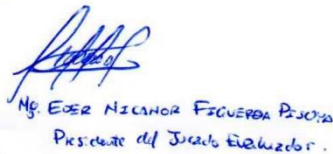 Mg. EDER NICANOR FIGUEROA PISCOYA
Presidente del Jurado Evaluador.